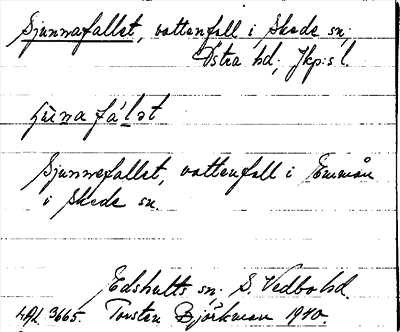 Sjunnafallet, vattenfall i Skede sn;
Östra hd; Jkp:s l.
Sjunnefallet, vattenfall i Emmån
i Skede sn.
Edshults sn. S. Vedbo hd.
3665. Torsten Björkman 1940.